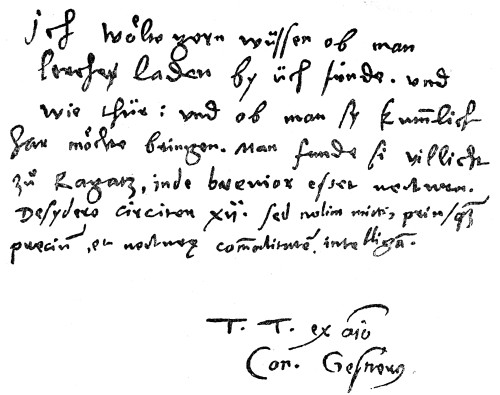 Ich wölte gern wüssen ob man
lerchen laden by üch funde. und
wie thür: und ob man sy kum̄lich
har möchte bringen. Man funde si villicht
zů Ragatz, inde brevior esset vectura.
Desydero circiter xij. sed nolim mitti, prius/q̄
preciū, et vecturę com̄oditatē, intelligā.
T. T. ex aio
Con. Gesnerus